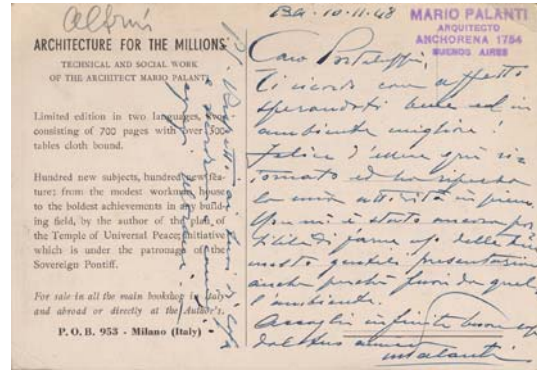 ARCHITECTURE FOR THE MILLIONS
TECHNICAL AND SOCIAL WORK
OF THE ARCHITECT MARIO PALANTI
Limited edition in two languages,
consisting of 700 pages with over 500
tables cloth bound.
Hundred new subjects, hundred new fea-
ture; from the modest workmen house
to the boldest achievements in any build-
ing field, by the author of the plan of
the Temple of Universal Peace; initiative
which is under the patronage of the
Sovereign Pontiff.
For sale in all the main bookshop in Italy
and abroad or directly at the Author's.
P. O. B. 953 - Milano (Italy)
BA. 10-11-48
MARIO PALANTI
ARQUITECTO
ANCHORENA 1754
BUENOS AIRES
Caro Portaluppi,
Ti ricordo con affetto
sperandoti bene ed in
ambiente migliore!
Felice d'essere qui ri-
tornato ed ho ripreso
la mia attività in pieno.
Non mi è stato ancora pos
sibile di farne uso delle tue
presentazioni
anche perchè fuori da quel
l'ambiente.
Accogli infiniti buoni
dal tuo
MPalanti